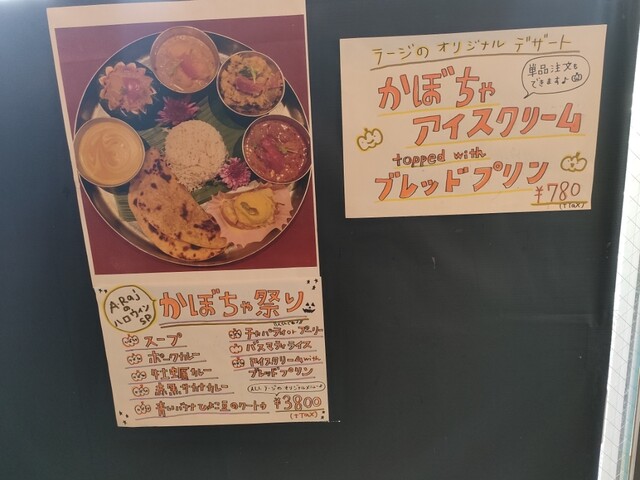 ラージの オリジナル デザート
かぼちゃ
アイスクリーム
単品注文も
できますよ
topped with
ブレッドプリン
¥780
(+Tax)
A.Raj
の
ハロウィン
SP
かぼちゃ祭り
スープ
ポークカレー
牡蠣カレー
サカナカレー
青いバナナひよこ豆のクートゥ
チャパティ or プーリー
バスマティライス
アイスクリーム with
ブレッドプリン
¥3800
(+Tax)